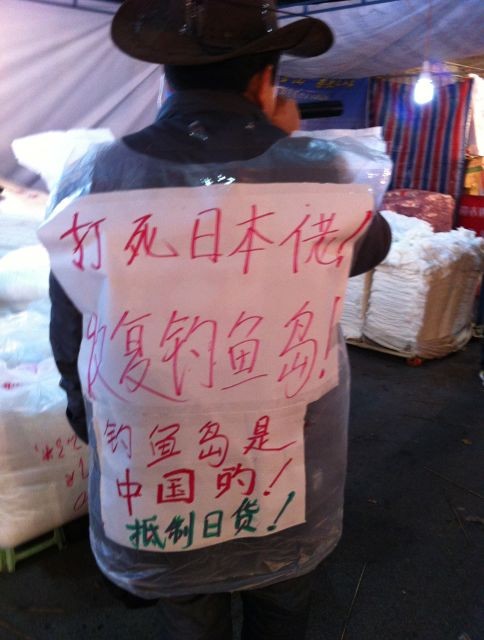 打死日本佬!
收复钓鱼岛!
钓鱼岛是
中国的!
抵制日货!